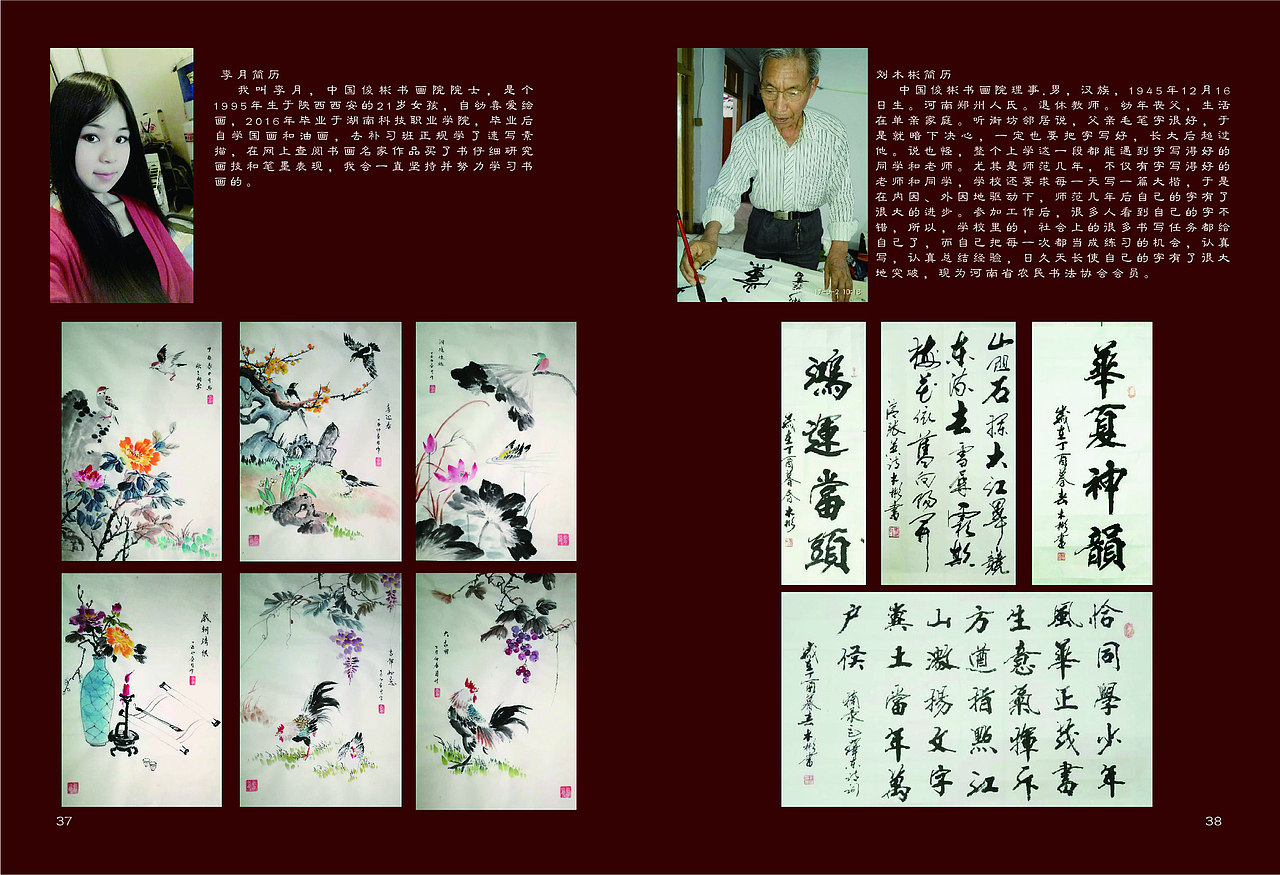 李月简历
我叫李月，中国俊彬书画院院士，是个
1995年生于陕西西安的21岁女孩，自幼喜爱绘
画，2016年毕业于湖南科技职业学院，毕业后
自学国画和油画，去补习班正规学了速写素
描，在网上查阅书画名家作品买了书仔细研究
画技和笔墨表现，我会一直坚持并努力学习书
画的。
37
刘木彬简历
中国俊彬书画院理事.男，汉族，1945年12月16
日生。河南郑州人氏。退休教师。幼年丧父，生活
在单亲家庭。听街坊邻居说，父亲毛笔字很好，于
是就暗下决心，一定也要把字写好，长大后超过
他。说也怪，整个上学这一段都能遇到字写得好的
同学和老师。尤其是师范几年，不仅有字写得好的
老师和同学，学校还要求每一天写一篇大楷，于是
在内因、外因地驱动下，师范几年后自己的字有了
很大的进步。参加工作后，很多人看到自己的字不
错，所以，学校里的，社会上的很多书写任务都给
自己了，而自己把每一次都当成练习的机会，认真
写，认真总结经验，日久天长使自己的字有了很大
地突破，现为河南省农民书法协会会员。
鴻運當頭
歲在丁酉暮春木彬
東流去雪辱霜欺
梅花依舊向陽開
華夏神韻
歲在丁酉暮春木彬書
恰同學少年
風華正茂書
生意氣揮斥
方遒指點江
山激揚文字
糞土當年萬
户侯
歲在丁酉暮春木彬書
38